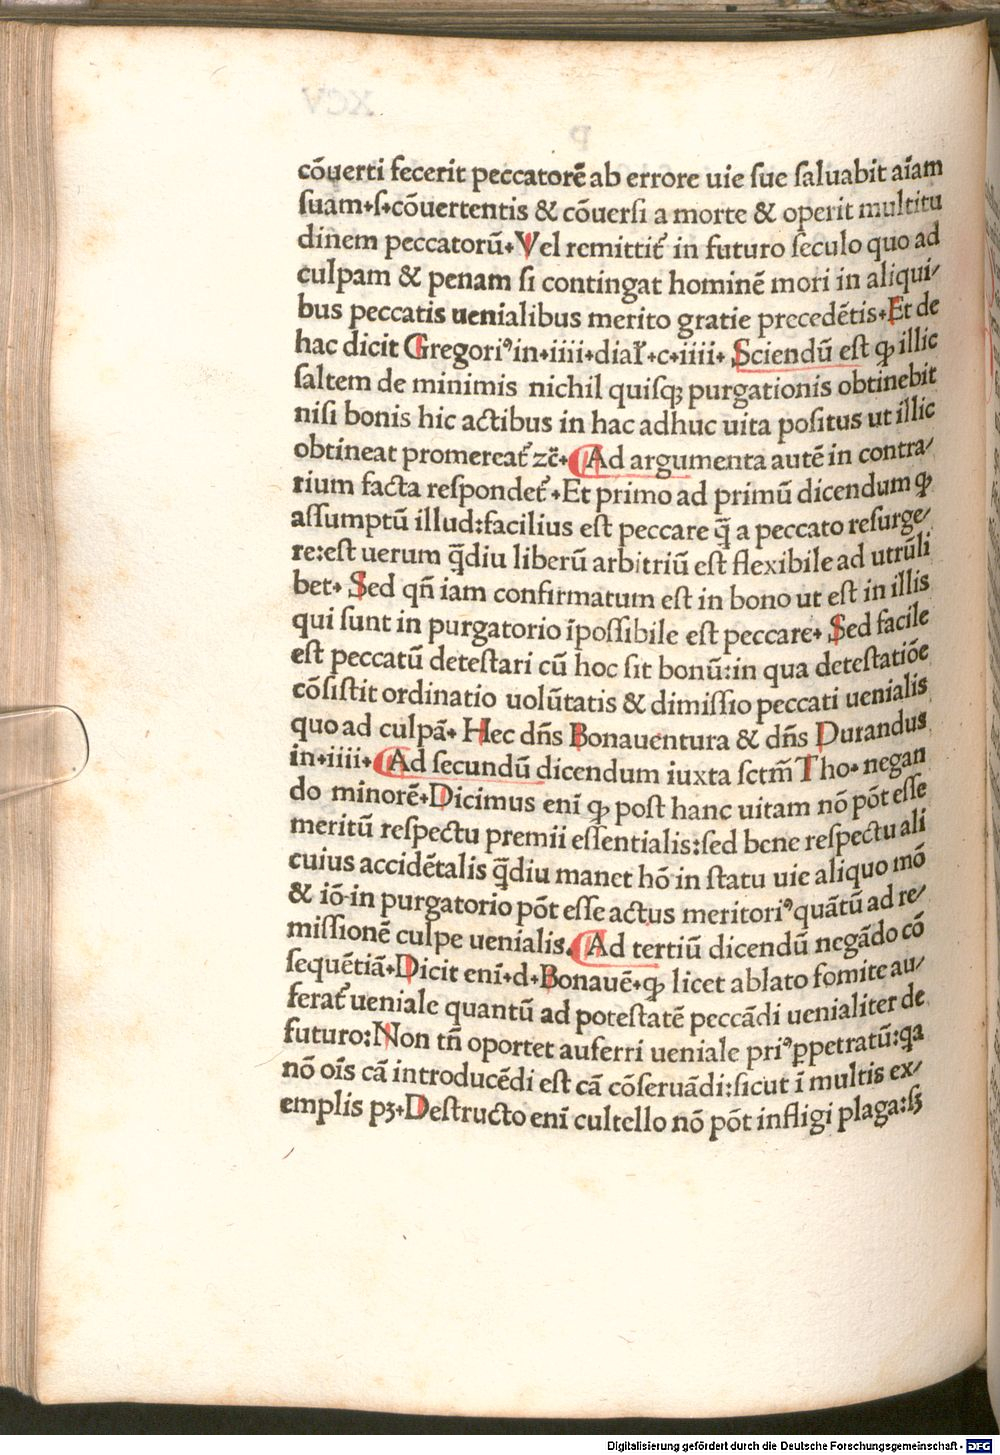 cōuerti fecerit peccatorē ab errore uie ſue ſaluabit aīam
ſuam·ſ·cōuertentis & cōuerſi a morte & operit multitu
dinem peccatorū·Vel remittit᷑ in futuro ſeculo quo ad
culpam & penam ſi contingat hominē mori in aliqui⸗
bus peccatis uenialibus merito gratie precedētis·Et de
hac dicit Gregoriꝰ in·iiii·dial̄·c·iiii· Sciendū eſt ꝙ illic
ſaltem de minimis nichil quiſqꝫ purgationis obtinebit
niſi bonis hic actibus in hac adhuc uita poſitus ut illic
obtineat promereat᷑ ⁊c̄· Ad argumenta autē in contra⸗
rium facta reſpondet᷑·Et primo ad primū dicendum ꝙ
aſſumptū illud:facilius eſt peccare q̄ a peccato reſurge⸗
re:eſt uerum q̄diu liberū arbitriū eſt flexibile ad utrūli
bet· Sed qn̄ iam confirmatum eſt in bono ut eſt in illis
qui ſunt in purgatorio īpoſſibile eſt peccare· Sed facile
eſt peccatū deteſtari cū hoc ſit bonū:in qua deteſtatiōe
cōſiſtit ordinatio uolūtatis & dimiſſio peccati uenialis
quo ad culpā· Hec dn̄s Bonauentura & dn̄s Durandus
in·iiii· Ad ſecundū dicendum iuxta ſctm̄ Tho· negan
do minorē·Dicimus enī ꝙ poſt hanc uitam nō pōt eſſe
meritū reſpectu premii eſſentialis:ſed bene reſpectu ali
cuius accidētalis q̄diu manet hō in ſtatu uie aliquo mō
& iō·in purgatorio pōt eſſe actus meritoriꝰ quātū ad re⸗
miſſionē culpe uenialis. Ad tertiū dicendū negādo cō
ſequētiā·Dicit enī·d·Bonauē·ꝙ licet ablato fomite au⸗
ferat᷑ ueniale quantū ad poteſtatē peccādi uenialiter de
futuro:Non tn̄ oportet auferri ueniale priꝰ ꝑpetratū:qa
nō oīs cā introducēdi eſt cā cōſeruādi:ſicut ī multis ex⸗
emplis pꝫ·Deſtructo enī cultello nō pōt infligi plaga:ſꝫ
Digitalisierung gefördert durch die Deutsche Forschungsgemeinschaft - DFG